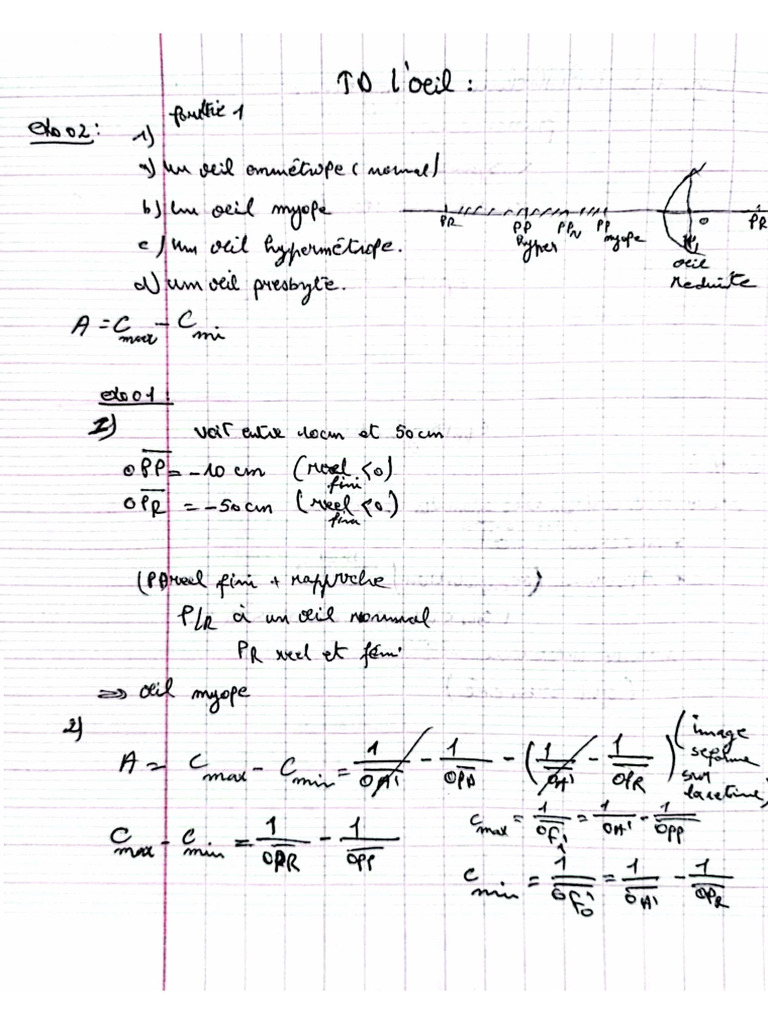 TD l'oeil :
exo 02 : partie 1
1)
a) un oeil emmétrope (normal)
b) un oeil myope
c) un oeil hypermétrope.
d) un oeil presbyte.
PR PP hyper PP_N PP myope O PR
oeil reduite
A = C_max - C_mi
exo 01 :
1) voit entre 10cm et 50cm
\overline{OPP} = -10 cm (reel <0) fini
\overline{OPR} = -50cm (reel <0.) fini
(PP reel fini + rapproche )
P/R à un oeil normal
PR reel et fini
=> oeil myope
2)
A = C_max - C_min = 1/\overline{OA'} - 1/\overline{OPP} - (1/\overline{OA'} - 1/\overline{OPR}) (image se forme sur la retine)
C_max - C_min = 1/\overline{OPR} - 1/\overline{OPP}
C_max = 1/\overline{OF'_1} = 1/\overline{OA'} - 1/\overline{OPP}
C_min = 1/\overline{OF'_0} = 1/\overline{OA'} - 1/\overline{OPR}